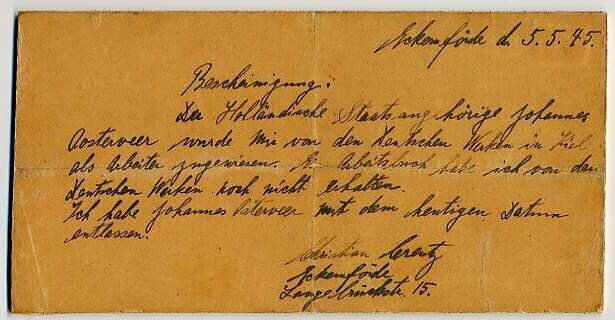 Eckernförde d. 5.5.45.
Bescheinigung.
Der Holländische Staatsangehörige Johannes
Oosterveer wurde mir von den Deutschen Werken in Kiel
als Arbeiter zugewiesen. Arbeitsbuch habe ich von den
Deutschen Werken noch nicht erhalten.
Ich habe Johannes Osterveer mit dem heutigen Datum
entlassen.
Christian
Eckernförde
Langebrückstr. 15.